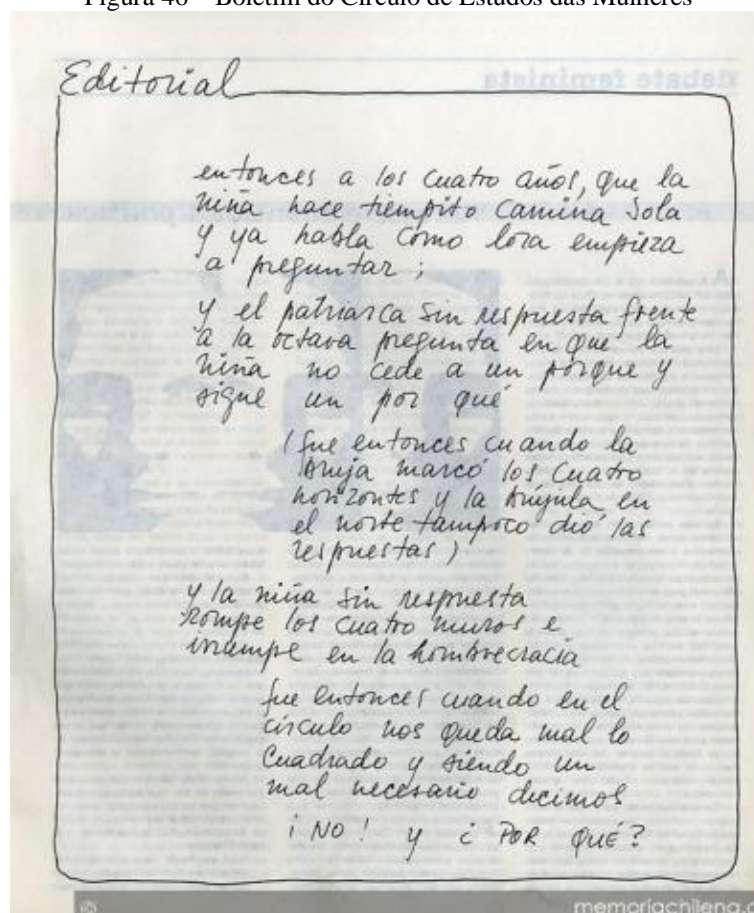 Figura 46 – Boletim do Círculo de Estudos das Mulheres
Editorial
debate feminista
entonces a los cuatro años, que la
niña hace tiempito camina sola
y ya habla como lora empieza
a preguntar;
y el patriarca sin respuesta frente
a la octava pregunta en que la
niña no cede a un porque y
sigue un por qué
(fue entonces cuando la
bruja marcó los cuatro
horizontes y la brújula en
el norte tampoco dió las
respuestas)
y la niña sin respuesta
rompe los cuatro muros e
irrumpe en la hombrecracia
fue entonces cuando en el
círculo nos queda mal lo
cuadrado y siendo un
mal necesario decimos
¡NO! y ¿POR QUÉ?
memoriachilena.c